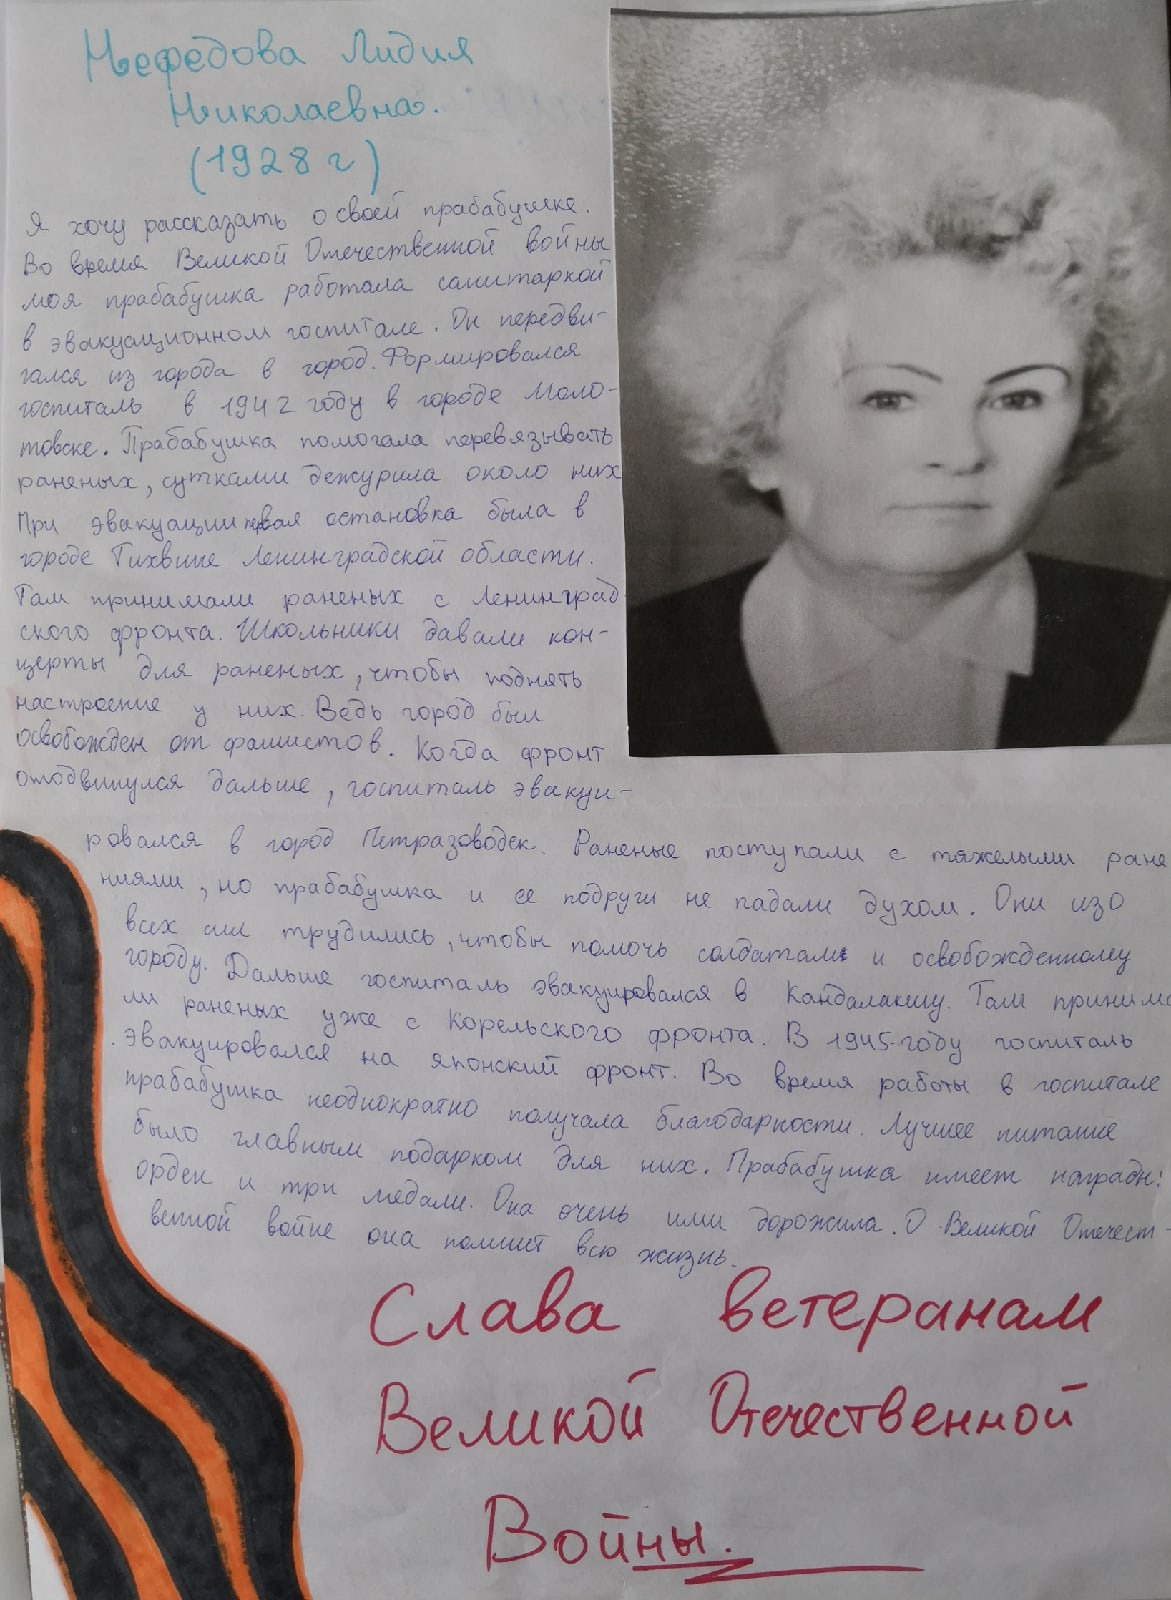 Нефёдова Лидия
Николаевна.
(1928 г)
Я хочу рассказать о своей прабабушке.
Во время Великой Отечественной войны
моя прабабушка работала санитаркой
в эвакуационном госпитале. Он передви-
гался из города в город. Формировался
госпиталь в 1942 году в городе Моло-
товске. Прабабушка помогала перевязывать
раненых, сутками дежурила около них
При эвакуации остановка была в
городе Тихвине Ленинградской области.
Там принимали раненых с Ленинград
ского фронта. Школьники давали кон-
церты для раненых, чтобы поднять
настроение у них. Ведь город был
освобожден от фашистов. Когда фронт
отодвинулся дальше, госпиталь эвакуи-
ровался в город Петразоводск. Раненые поступали с тяжелыми ране
ниями, но прабабушка и ее подруги не падали духом. Они изо
всех сил трудились, чтобы помочь солдатам и освобожденному
городу. Дальше госпиталь эвакуировался в Кандалакшу. Там принима
ли раненых уже с Корельского фронта. В 1945 году госпиталь
эвакуировался на японский фронт. Во время работы в госпитале
прабабушка неоднократно получала благодарности. Лучшее питание
было главным подарком для них. Прабабушка имеет наградн:
орден и три медали. Она очень ими дорожила. О Великой Отечест-
венной войне она помнит всю жизнь.
Слава ветеранам
Великой Отечественной
Войны.